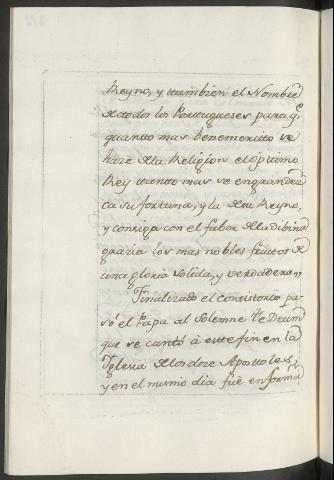 Reyno, y ttambien el Nombre
de todos los Porttugueses, para q.e
quantto mas benemeritto se
haze de la Religion el optimo
Rey ttantto mas se engrandez
ca su forttuna, y la de su Reyno,
y consiga con el fabor de la Dibina
gracia los mas nobles frutos de
una gloria solida, y verdadera.
Finalizado el consistorio pa
só el Papa al solemne Te Deum
que se cantó á este fin en la
Iglesia de los doze Aposttoles,
y en el mismo dia fué en forma